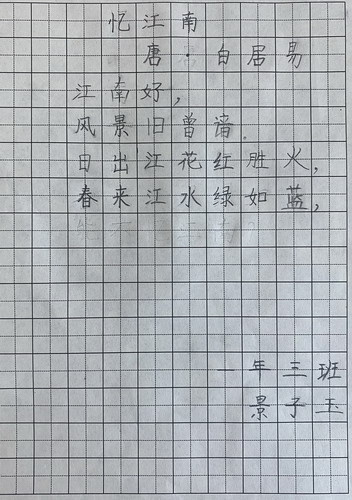 忆江南
唐·白居易
江南好,
风景旧曾谙.
日出江花红胜火,
春来江水绿如蓝,
一年三班
景子玉